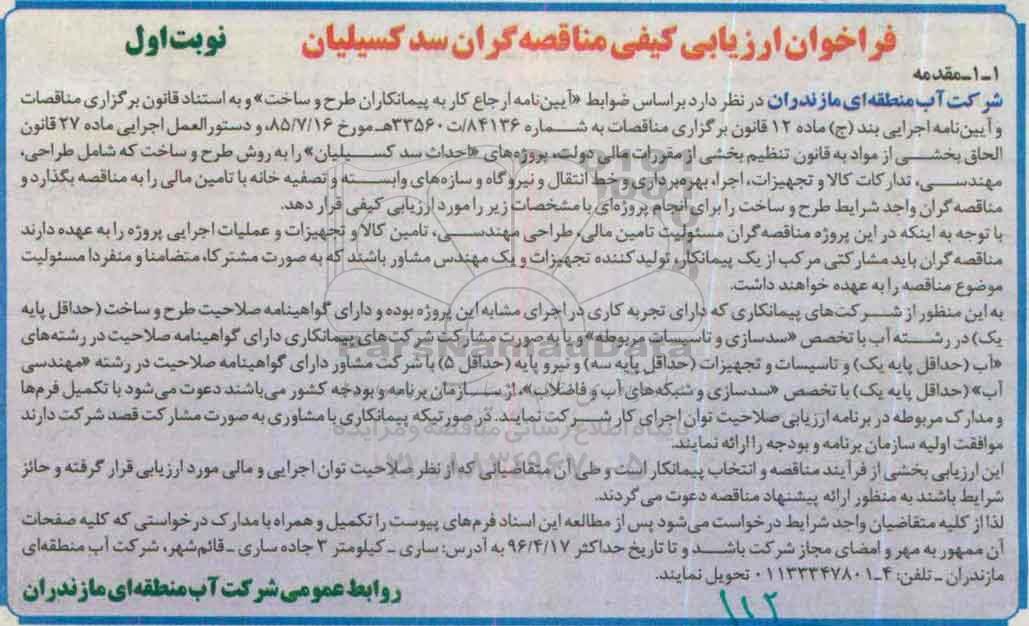 فراخوان ارزیابی کیفی مناقصه گران سد کسیلیان
نوبت اول
۱-۱-مقدمه
شرکت آب منطقه‌ای مازندران در نظر دارد براساس ضوابط «آیین‌نامه ارجاع کار به پیمانکاران طرح و ساخت» و به استناد قانون برگزاری مناقصات
و آیین‌نامه اجرایی بند (ج) ماده ۱۲ قانون برگزاری مناقصات به شماره ۸۴۱۳۶/ت۳۳۵۶۰هـ مورخ ۸۵/۷/۱۶، و دستورالعمل اجرایی ماده ۲۷ قانون
الحاق بخشی از مواد به قانون تنظیم بخشی از مقررات مالی دولت، پروژه‌های «احداث سد کسیلیان» را به روش طرح و ساخت که شامل طراحی،
مهندسی، تدارکات کالا و تجهیزات، اجرا، بهره‌برداری و خط انتقال و نیروگاه و سازه‌های وابسته و تصفیه خانه با تامین مالی را به مناقصه بگذارد و
مناقصه‌گران واجد شرایط طرح و ساخت را برای انجام پروژه‌ای با مشخصات زیر را مورد ارزیابی کیفی قرار دهد.
با توجه به اینکه در این پروژه مناقصه‌گران مسئولیت تامین مالی، طراحی مهندسی، تامین کالا و تجهیزات و عملیات اجرایی پروژه را به عهده دارند
مناقصه‌گران باید مشارکتی مرکب از یک پیمانکار، تولیدکننده تجهیزات و یک مهندس مشاور باشند که به صورت مشترکا، متضامنا و منفردا مسئولیت
موضوع مناقصه را به عهده خواهند داشت.
به این منظور از شرکت‌های پیمانکاری که دارای تجربه کاری در اجرای مشابه این پروژه بوده و دارای گواهینامه صلاحیت طرح و ساخت (حداقل پایه
یک) در رشته آب با تخصص «سدسازی و تاسیسات مربوطه» و یا به صورت مشارکت شرکت‌های پیمانکاری دارای گواهینامه صلاحیت در رشته‌های
«آب (حداقل پایه یک) و تاسیسات و تجهیزات (حداقل پایه سه) و نیرو پایه (حداقل ۵) با شرکت مشاور دارای گواهینامه صلاحیت در رشته «مهندسی
آب» (حداقل پایه یک) با تخصص «سدسازی و شبکه‌های آب و فاضلاب»، از سازمان برنامه و بودجه کشور می‌باشند دعوت می‌شود با تکمیل فرم‌ها
و مدارک مربوطه در برنامه ارزیابی صلاحیت توان اجرای کار شرکت نمایند. در صورتیکه پیمانکاری یا مشاوری به صورت مشارکت قصد شرکت دارند
موافقت اولیه سازمان برنامه و بودجه را ارائه نمایند.
این ارزیابی بخشی از فرآیند مناقصه و انتخاب پیمانکار است و طی آن متقاضیانی که از نظر صلاحیت توان اجرایی و مالی مورد ارزیابی قرار گرفته و حائز
شرایط باشند به منظور ارائه پیشنهاد مناقصه دعوت می گردند.
لذا از کلیه متقاضیان واجد شرایط درخواست می‌شود پس از مطالعه این اسناد فرم‌های پیوست را تکمیل و همراه با مدارک درخواستی که کلیه صفحات
آن ممهور به مهر و امضای مجاز شرکت باشد و تا تاریخ حداکثر ۹۶/۴/۱۷ به آدرس: ساری - کیلومتر ۳ جاده ساری - قائم‌شهر، شرکت آب منطقه‌ای
مازندران - تلفن: ۴-۰۱۱۳۳۳۴۷۸۰۱ تحویل نمایند.
روابط عمومی شرکت آب منطقه‌ای مازندران
۱۱۲
ParsNamadData
پایگاه اطلاع رسانی مناقصه و مزایده